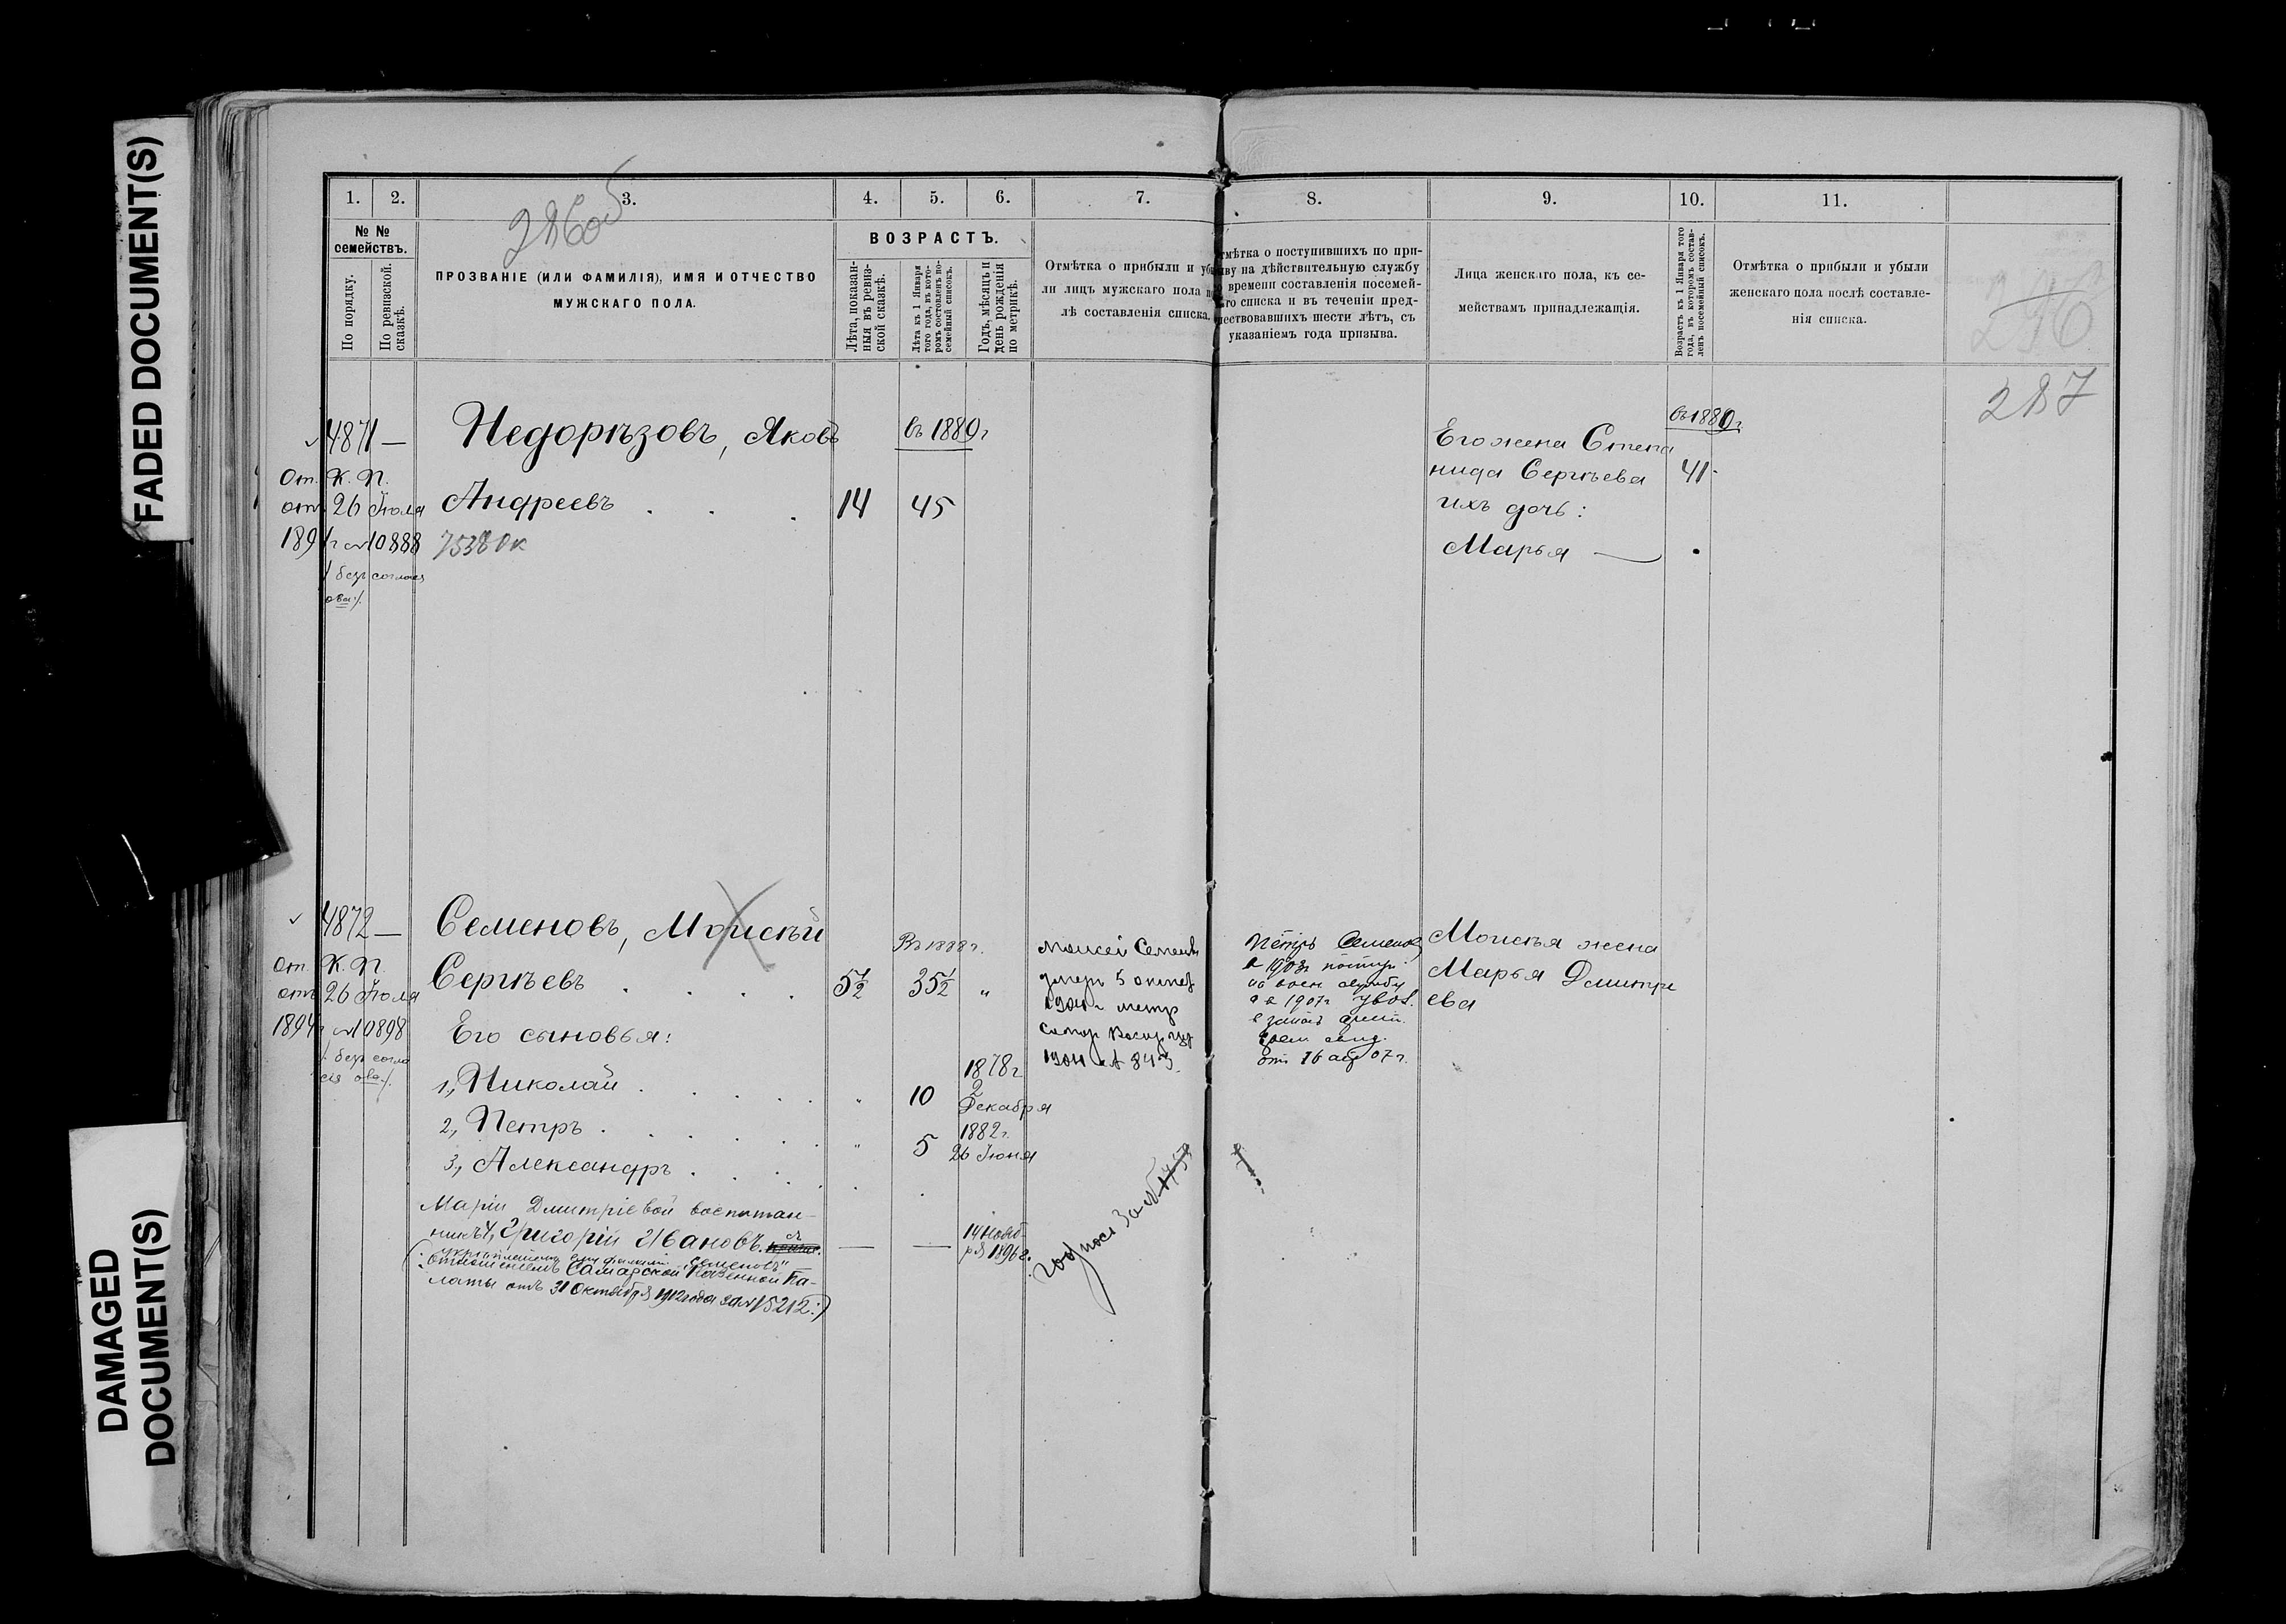 FADED DOCUMENT(S)
DAMAGED
DOCUMENT(S)
1. 2. 3. 4. 5. 6. 7. 8. 9. 10. 11.
286об
№ №
семействъ.
По порядку.
По ревизской
сказкѣ.
ПРОЗВАНІЕ (ИЛИ ФАМИЛІЯ), ИМЯ И ОТЧЕСТВО
МУЖСКАГО ПОЛА.
ВОЗРАСТЪ.
Лѣта, показан-
ныя въ ревиз-
ской сказкѣ.
Лѣта къ 1 Января
того года, въ кото-
ромъ составленъ по-
семейный списокъ.
Годъ, мѣсяцъ и
день рожденія
по метрикѣ.
Отмѣтка о прибыли и убы
ли лицъ мужскаго пола по
лѣ составленія списка.
тмѣтка о поступившихъ по при-
ву на дѣйствительную службу
времени составленія посемей-
го списка и въ теченіи пред-
шествовавшихъ шести лѣтъ, съ
указаніемъ года призыва.
Лица женскаго пола, къ се-
мействамъ принадлежащія.
Возрастъ къ 1 Января того
года, въ которомъ состав-
ленъ посемейный списокъ.
Отмѣтка о прибыли и убыли
женскаго пола послѣ составле-
нія списка.
296
287
4871 —
От. К. П.
отъ 26 Іюля
1894 г № 10888
Недорѣзовъ, Яковъ
Андреевъ . . . 14 45
въ 1889 г
7538
Его жена Степа
нида Сергѣева 41
ихъ дочь:
Марья — .
въ 1889 г.
4872 —
От. К. П.
отъ 26 Іюля
1894 г № 10898
/ безъ согла
сія
Семеновъ, Моисѣй
Сергѣевъ . . . . 5½ 35½ „
Въ 1888 г.
Его сыновья:
1, Николай . . . . . „ 10 1878 г 2 Декабря
2, Петръ . . . . . „ 5 1882 г. 26 Іюня
3, Александръ . . . . . .
Маріи Дмитріевой воспитан-
никъ 4, Григорій Ивановъ. — — 14 Нояб-
ря 1896 г.
(: укрѣпленіемъ ему фамиліи „Семеновъ"
отношеніемъ Самарской Казенной Па-
латы отъ 31 Октября 1912 года за № 15212:)
Моисей Семеновъ
умеръ 5
1904 г метр
1904 № 843
Петръ Семеновъ
в 1903 г поступ.
на воен службу
а в 1907 г увол.
в запас арміи.
отъ 16 07 г.
Моисѣя жена
Марья Дмитріе
ева